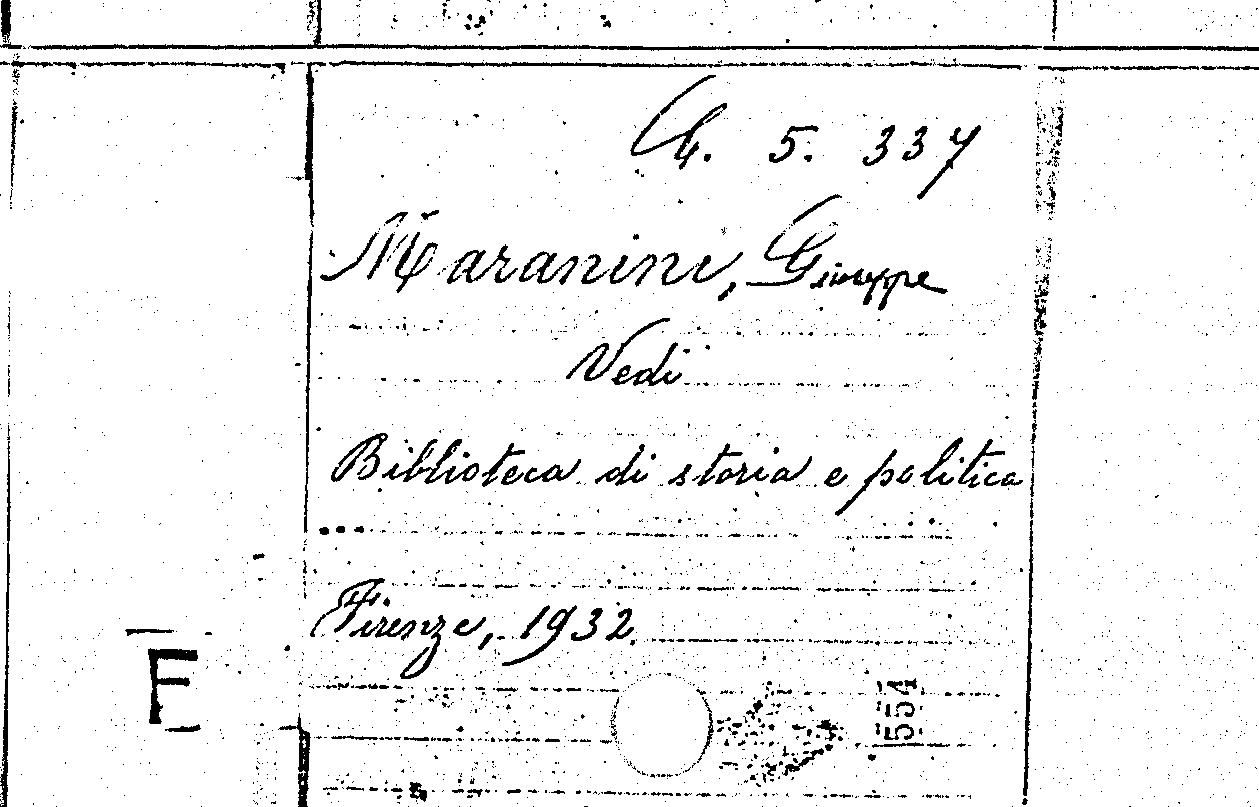 5. 337
Maranini, Giuseppe
Vedi
Biblioteca di storia e politica
...
Firenze, 1932.
F
554